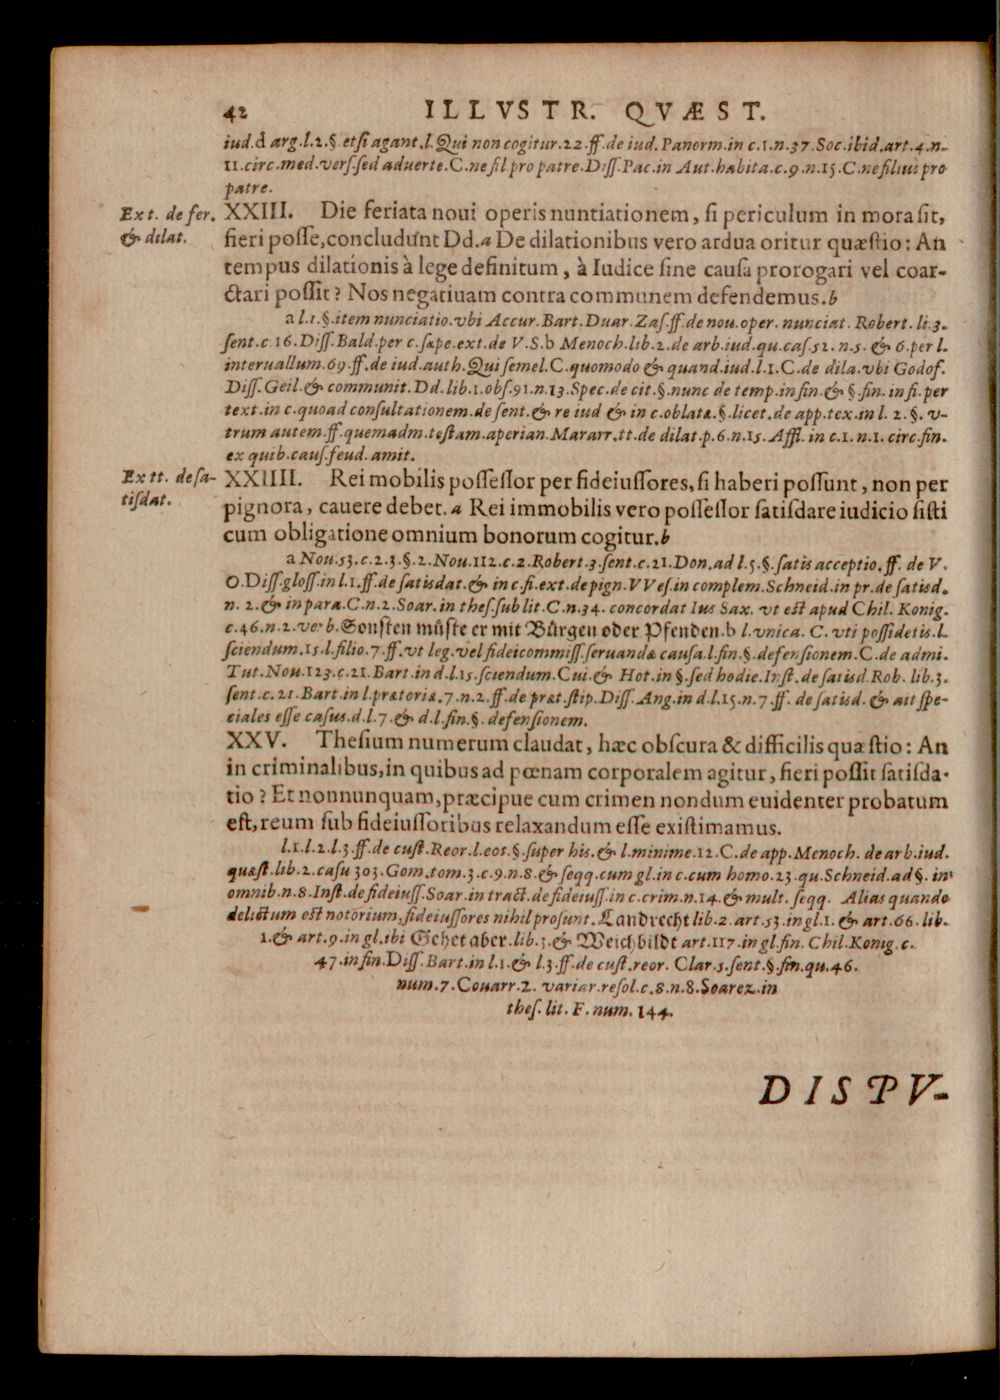 42 ILLVSTR. QVÆST.
iud.d arg.l.2.§.etſi agant.l.Qui non cogitur.22.ff.de iud. Panorm.in c.1.n.37.Soc.ibid.art.4.n.
11.circ.med.verſ.ſed aduerte.C.ne fil pro patre.Diſſ.Pac.in Aut.habita.c.9.n.15.C.ne filius pro
patre.
Ext. de fer.
& dilat.
XXIII. Die feriata noui operis nuntiationem, ſi periculum in mora ſit,
fieri poſſe,concludunt Dd.a De dilationibus vero ardua oritur quæſtio: An
tempus dilationis à lege definitum, à Iudice ſine cauſa prorogari vel coar-
ctari poſſit? Nos negatiuam contra communem defendemus.b
a l.1.§.item nunciatio.vbi Accur.Bart.Duar.Zaſ.ff.de nou.oper. nunciat. Robert. li.3.
ſent.c 16.Diſſ.Bald.per c.ſæpe.ext.de V.S.b Menoch.lib.2.de arb.iud.qu.caſ.52. n.5. & 6.per l.
interuallum.69.ff.de iud.auth.Qui ſemel.C.quomodo & quand.iud.l.1.C.de dila.vbi Godof.
Diſſ.Geil.& communit.Dd.lib.1.obſ.91.n.13.Spec.de cit.§.nunc de temp.in fin.& §.fin. in fi.per
text.in c.quoad conſultationem.de ſent.& re iud & in c.oblatæ.§.licet.de app.tex.in l. 2.§. v-
trum autem.ff.quemadm.teſtam.aperian.Mararr.tt.de dilat.p.6.n.15. Affl. in c.1. n.1. circ.fin.
ex quib.cauſ.feud. amit.
Ex tt. de ſa-
tiſdat.
XXIIII. Rei mobilis poſſeſſor per fideiuſſores, ſi haberi poſſunt, non per
pignora, cauere debet.a Rei immobilis vero poſſeſſor ſatiſdare iudicio ſiſti
cum obligatione omnium bonorum cogitur.b
a Nou.53.c.2.3.§.2.Nou.112.c.2.Robert.3.ſent.c.21.Don.ad l.5.§.ſatis acceptio.ff. de V.
O.Diſſ.gloſſ.in l.1.ff.de ſatisdat.& in c.fi.ext.de pign.VVeſ.in complem.Schneid.in pr.de ſatisd.
n. 2.& in para.C.n.2.Soar.in theſ.ſub lit.C.n.34. concordat Ius Sax. vt eſt apud Chil. Konig.
c.46.n.2.verb.Sonſten müſte er mit Bürgen oder Pfenden.b l.vnica. C. vti poſſidetis.l.
ſciendum.15.l.filio.7.ff.vt leg.vel fideicommiſſ.ſeruandæ cauſa.l.fin.§.defenſionem.C.de admi.
Tut.Nou.123.c.21.Bart.in d.l.15.ſciendum.Cui.& Hot.in §.ſed hodie.Inſt.de ſatisd.Rob. lib.3.
ſent.c.21.Bart.in l.prætoriæ.7.n.2.ff.de præt.ſtip.Diſſ.Ang.in d.l.15.n.7.ff. de ſatisd. & ait ſpe-
ciales eſſe caſus.d.l.7.& d.l.fin.§. defenſionem.
XXV. Theſium numerum claudat, hæc obſcura & difficilis quæſtio: An
in criminalibus,in quibus ad pœnam corporalem agitur, fieri poſſit ſatiſda-
tio? Et nonnunquam,præcipue cum crimen nondum euidenter probatum
eſt,reum ſub fideiuſſoribus relaxandum eſſe exiſtimamus.
l.1.l.2.l.3.ff.de cuſt.Reor.l.eos.§.ſuper his.& l.minime.12.C.de app.Menoch. de arb.iud.
quæſt.lib.2.caſu 303.Gom.tom.3.c.9.n.8.& ſeqq.cum gl.in c.cum homo.23.qu.Schneid.ad §. in
omnib.n.8.Inſt.de fideiuſſ.Soar.in tract.de fideiuſſ.in c.crim.n.14.& mult. ſeqq. Alias quando
delictum eſt notorium,fideiuſſores nihil proſunt.Landrecht lib.2.art.53.in gl.1. & art.66.lib.
1.& art.9.in gl.ibi Gehet aber.lib.3.& Weichbildt art.117.in gl.fin. Chil.Konig.c.
47.in fin.Diſſ.Bart.in l.1.& l.3.ff.de cuſt.reor. Clar.5.ſent.§.fin.qu.46.
num.7.Couarr.2. variar.reſol.c.8.n.8.Soarez.in
theſ. lit. F. num. 144.
DISPV-